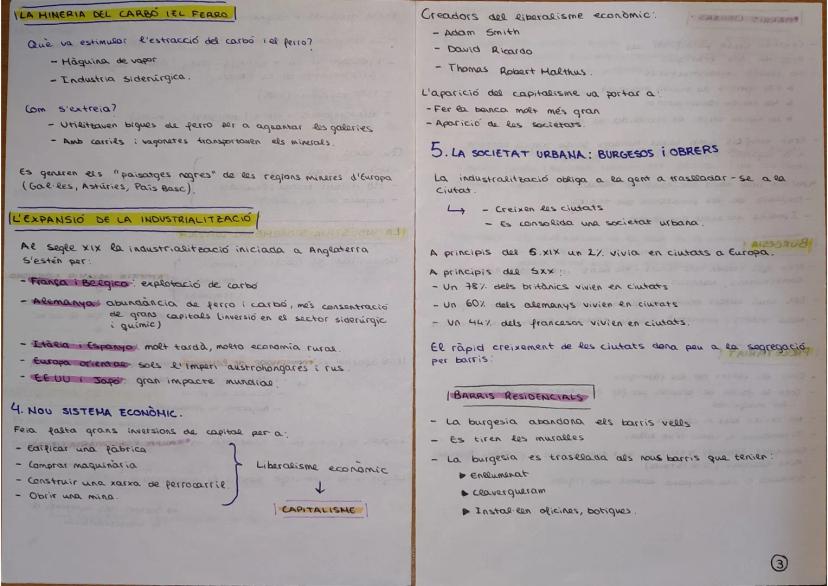 LA MINERIA DEL CARBÓ I EL FERRO
Què va estimular l'estracció del carbó i el ferro?
- Màquina de vapor
- Industria siderúrgica.
Com s'extreia?
- Utilitzaven bigues de ferro per a aguantar les galeries
- Amb carrils i vagonetes transportaven els minerals.
Es generen els "paisatges negres" de les regions mineres d'Europa
(Gal·les, Astúries, País Basc).
L'EXPANSIÓ DE LA INDUSTRIALITZACIÓ
Al segle XIX la industrialització iniciada a Anglaterra
s'estén per:
- França i Bèlgica: explotació de carbó
- Alemanya abundància de ferro i carbó, més consentració
de grans capitals (inversió en el sector siderúrgic
i químic)
- Itàlia i Espanya molt tardà, molta economia rural.
- Europa oriental sols l'Imperi austrohongarés i rus.
- EEUU i Japó gran impacte mundial.
4. NOU SISTEMA ECONÒMIC.
Feia falta grans inversions de capital per a:
- Edificar una fàbrica
- Comprar maquinària
- Construir una xarxa de ferrocarril
- Obrir una mina.
Liberalisme econòmic
↓
CAPITALISME
Creadors del liberalisme econòmic:
- Adam Smith
- David Ricardo
- Thomas Robert Malthus.
L'aparició del capitalisme va portar a:
- Fer la banca molt més gran
- Aparició de les societats.
5. LA SOCIETAT URBANA: BURGESOS I OBRERS
La industralització obliga a la gent a traslladar-se a la
ciutat.
↳ - Creixen les ciutats
- Es consolida una societat urbana.
A principis del S.XIX un 2% vivia en ciutats a Europa.
A principis del SXX:
- Un 78% dels britànics vivien en ciutats
- Un 60% dels alemanys vivien en ciutats
- Un 44% dels francesos vivien en ciutats.
El ràpid creixement de les ciutats dona peu a la segregació
per barris:
BARRIS RESIDENCIALS
- La burgesia abandona els barris vells
- Es tiren les muralles
- La burgesia es traslada als nous barris que tenien:
▸ Enllumenat
▸ Clavergueram
▸ Instal·len oficines, botigues.
3